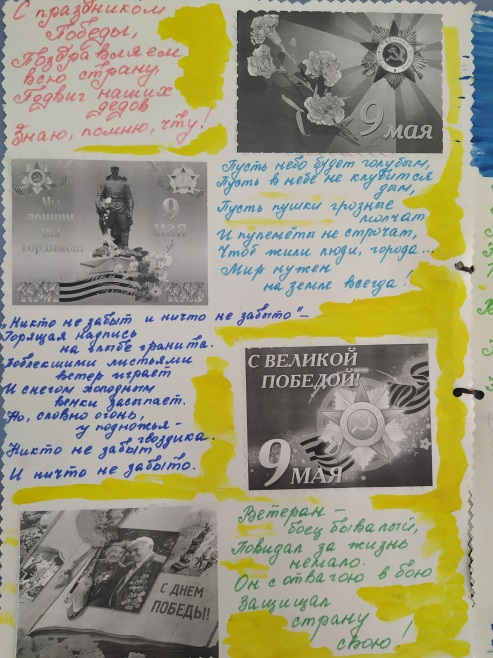 С праздником
Победы,
Поздравляем
всю страну
Подвиг наших
дедов
Знаю, помню, чту!
9 мая
Мы
помним
мы
гордимся
9
мая
Пусть небо будет голубым,
Пусть в небе не клубится
дым,
Пусть пушки грозные
молчат
И пулемёты не строчат,
Чтоб жили люди, города...
Мир нужен
на земле всегда!
"Никто не забыт и ничто не забыто" –
Горящая надпись
на глыбе гранита.
Поблекшими листьями
ветер играет
И снегом холодным
венки засыпает.
Но, словно огонь,
у подножья –
гвоздика.
Никто не забыт
И ничто не забыто.
С ВЕЛИКОЙ
ПОБЕДОЙ!
9 МАЯ
Ветеран –
боец бывалый,
Повидал за жизнь
немало.
Он с отвагою в бою
Защищал
страну
свою!
С ДНЕМ
ПОБЕДЫ!